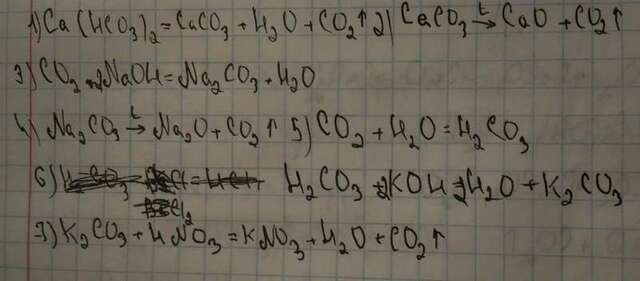 1) Ca(HCO₃)₂ = CaCO₃ + H₂O + CO₂↑ 2) CaCO₃ →ᵗ CaO + CO₂↑
3) CO₂ + 2NaOH = Na₂CO₃ + H₂O
4) Na₂CO₃ →ᵗ Na₂O + CO₂↑ 5) CO₂ + H₂O = H₂CO₃
6) H₂CO₃ + 2KOH = 2H₂O + K₂CO₃
7) K₂CO₃ + HNO₃ = KNO₃ + H₂O + CO₂↑